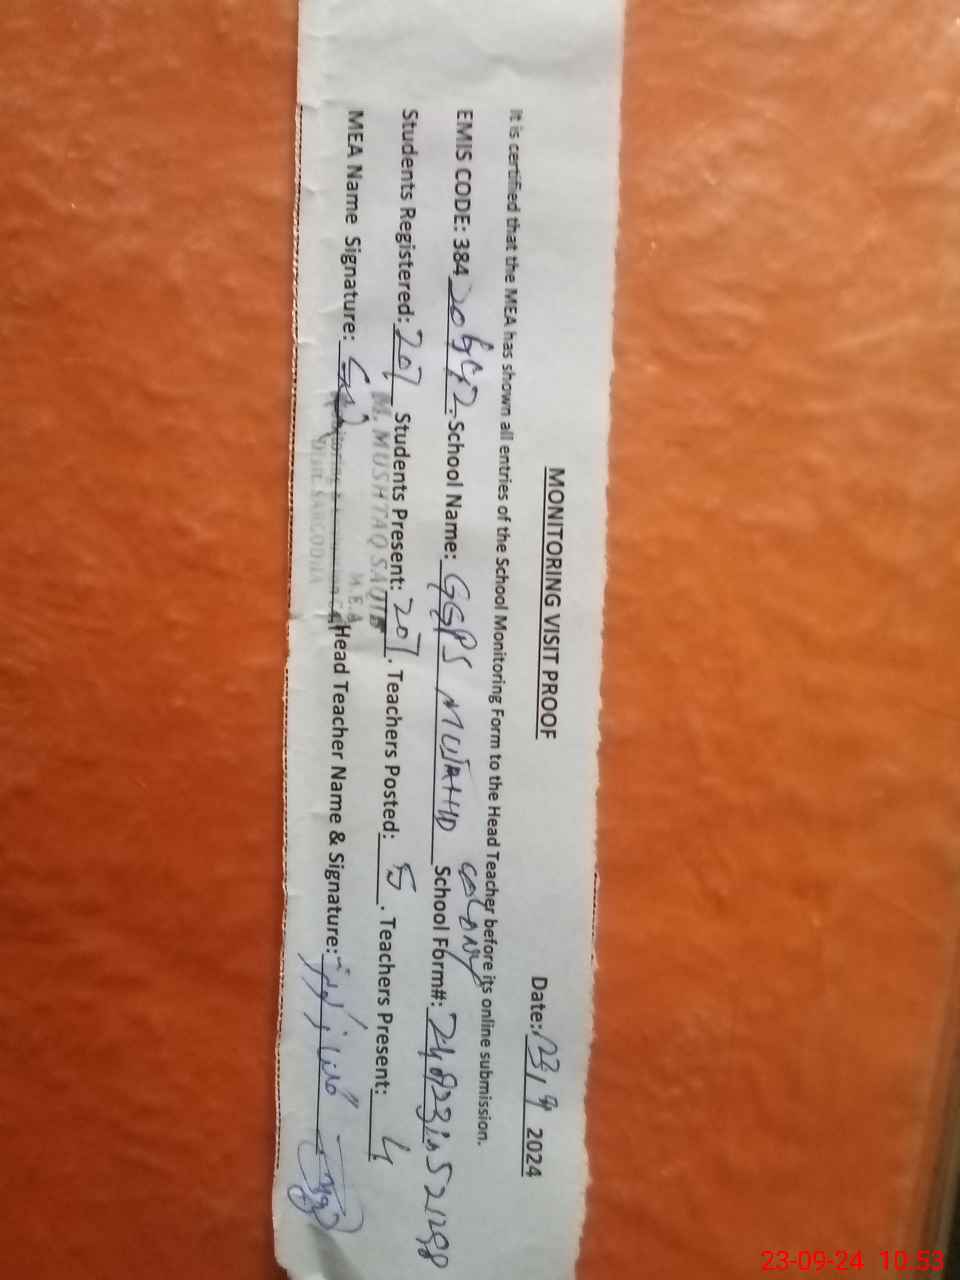 MONITORING VISIT PROOF
Date: 23/9 2024
It is certified that the MEA has shown all entries of the School Monitoring Form to the Head Teacher before its online submission.
EMIS CODE: 384 School Name: GGPS MUJAHID COLONY School Form#:
Students Registered: 207 Students Present: 207. Teachers Posted: 5. Teachers Present: 4
M. MUSHTAQ SAQIB
M.E.A
MEA Name Signature: Head Teacher Name & Signature:
Distt. SARGODHA
23-09-24 10:53